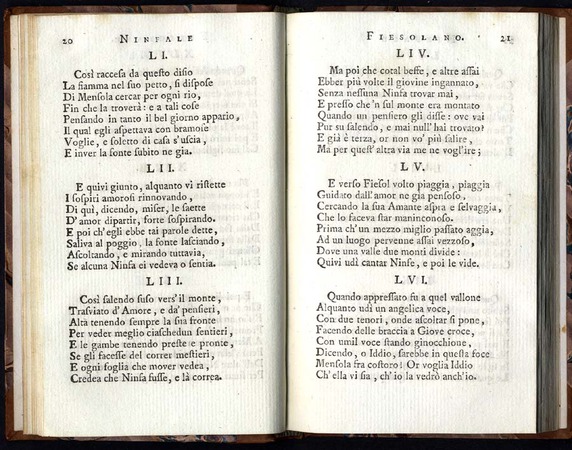 20 NINFALE
LI.
Così raccesa da questo disio
La fiamma nel suo petto, si dispose
Di Mensola cercar per ogni rio,
Fin che la troverà: e a tali cose
Pensando in tanto il bel giorno appario,
Il qual egli aspettava con bramose
Voglie, e soletto di casa s'uscia,
E inver la fonte subito ne gia.
LII.
E quivi giunto, alquanto vi ristette
I sospiri amorosi rinnovando,
Di quì, dicendo, miser, le saette
D'amor dipartir, forte sospirando.
E poi ch'egli ebbe tai parole dette,
Saliva al poggio, la fonte lasciando,
Ascoltando, e mirando tuttavia,
Se alcuna Ninfa ei vedeva o sentia.
LIII.
Così salendo suso vers' il monte,
Trasviato d'Amore, e da' pensieri,
Alta tenendo sempre la sua fronte
Per veder meglio ciaschedun sentieri,
E le gambe tenendo preste e pronte,
Se gli facesse del correr mestieri,
E ogni foglia che mover vedea,
Credea che Ninfa fusse, e là correa.
FIESOLANO. 21
LIV.
Ma poi che cotal beffe, e altre assai
Ebber più volte il giovine ingannato,
Senza nessuna Ninfa trovar mai,
E presso che 'n sul monte era montato
Quando un pensiero gli disse: ove vai
Pur su salendo, e mai null' hai trovato?
E già è terza, or non vo' più salire,
Ma per quest' altra via me ne vogl'ire;
LV.
E verso Fiesol volto piaggia, piaggia
Guidato dall' amor ne gia pensoso,
Cercando la sua Amante aspra e selvaggia,
Che lo faceva star maninconoso.
Prima ch'un mezzo miglio passato aggia,
Ad un luogo pervenne assai vezzoso,
Dove una valle due monti divide:
Quivi udì cantar Ninfe, e poi le vide.
LVI.
Quando appressato fu a quel vallone
Alquanto udì un angelica voce,
Con due tenori, onde ascoltar si pone,
Facendo delle braccia a Giove croce,
Con umil voce stando ginocchione,
Dicendo, o Iddio, sarebbe in questa foce
Mensola fra costoro! Or voglia Iddio
Ch'ella vi sia, ch'io la vedrò anch'io.